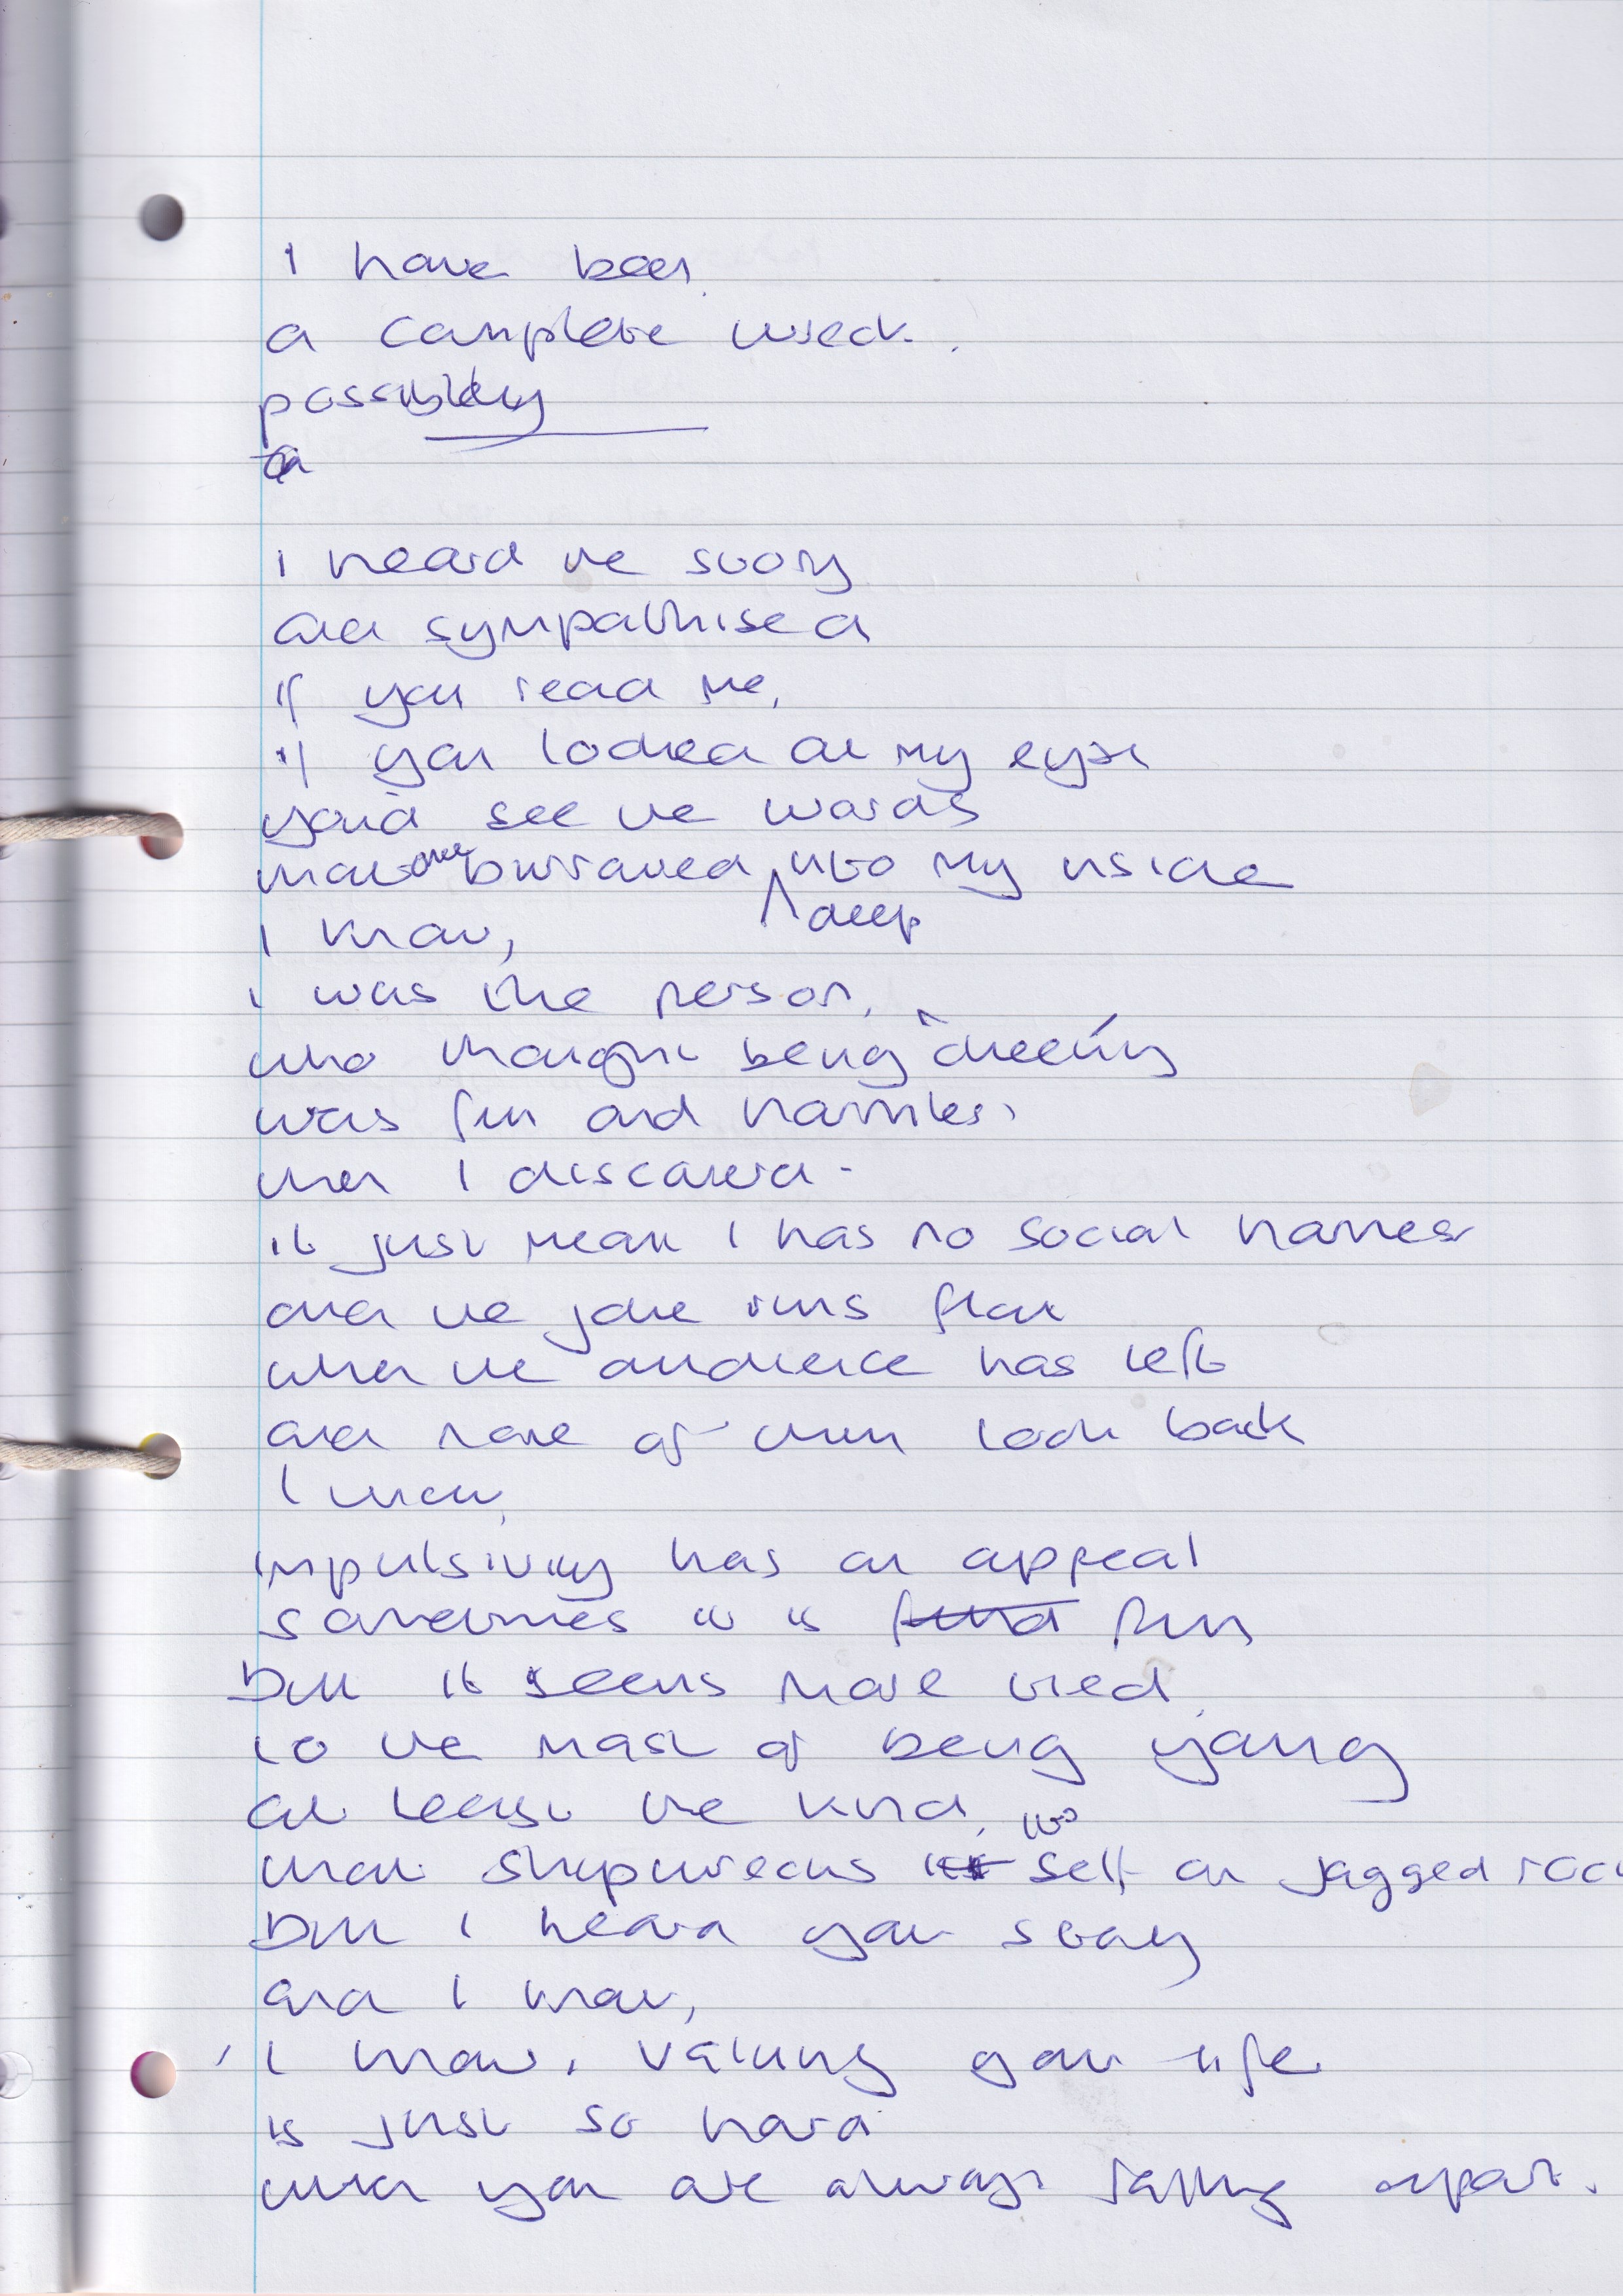 I have been
a complete wreck.
possibly
a

I heard the story
and sympathised
if you read me,
if you looked at my eyes
you'd see the words
that are burrowed deep into my inside
I know,
I was the person,
who thought being "cheeky"
was fun and harmless
then I discovered -
it just mean I has no social names
and the joke runs flat
when the audience has left
and none of them look back
I know,
impulsivity has an appeal
sometimes it is fun
but it seems more tied
to the mask of being young
at least the kind,
that shipwrecks its self on jagged roc
but I heard your story
and I know,
I know, valuing your life
is just so hard
when you are always falling apart.